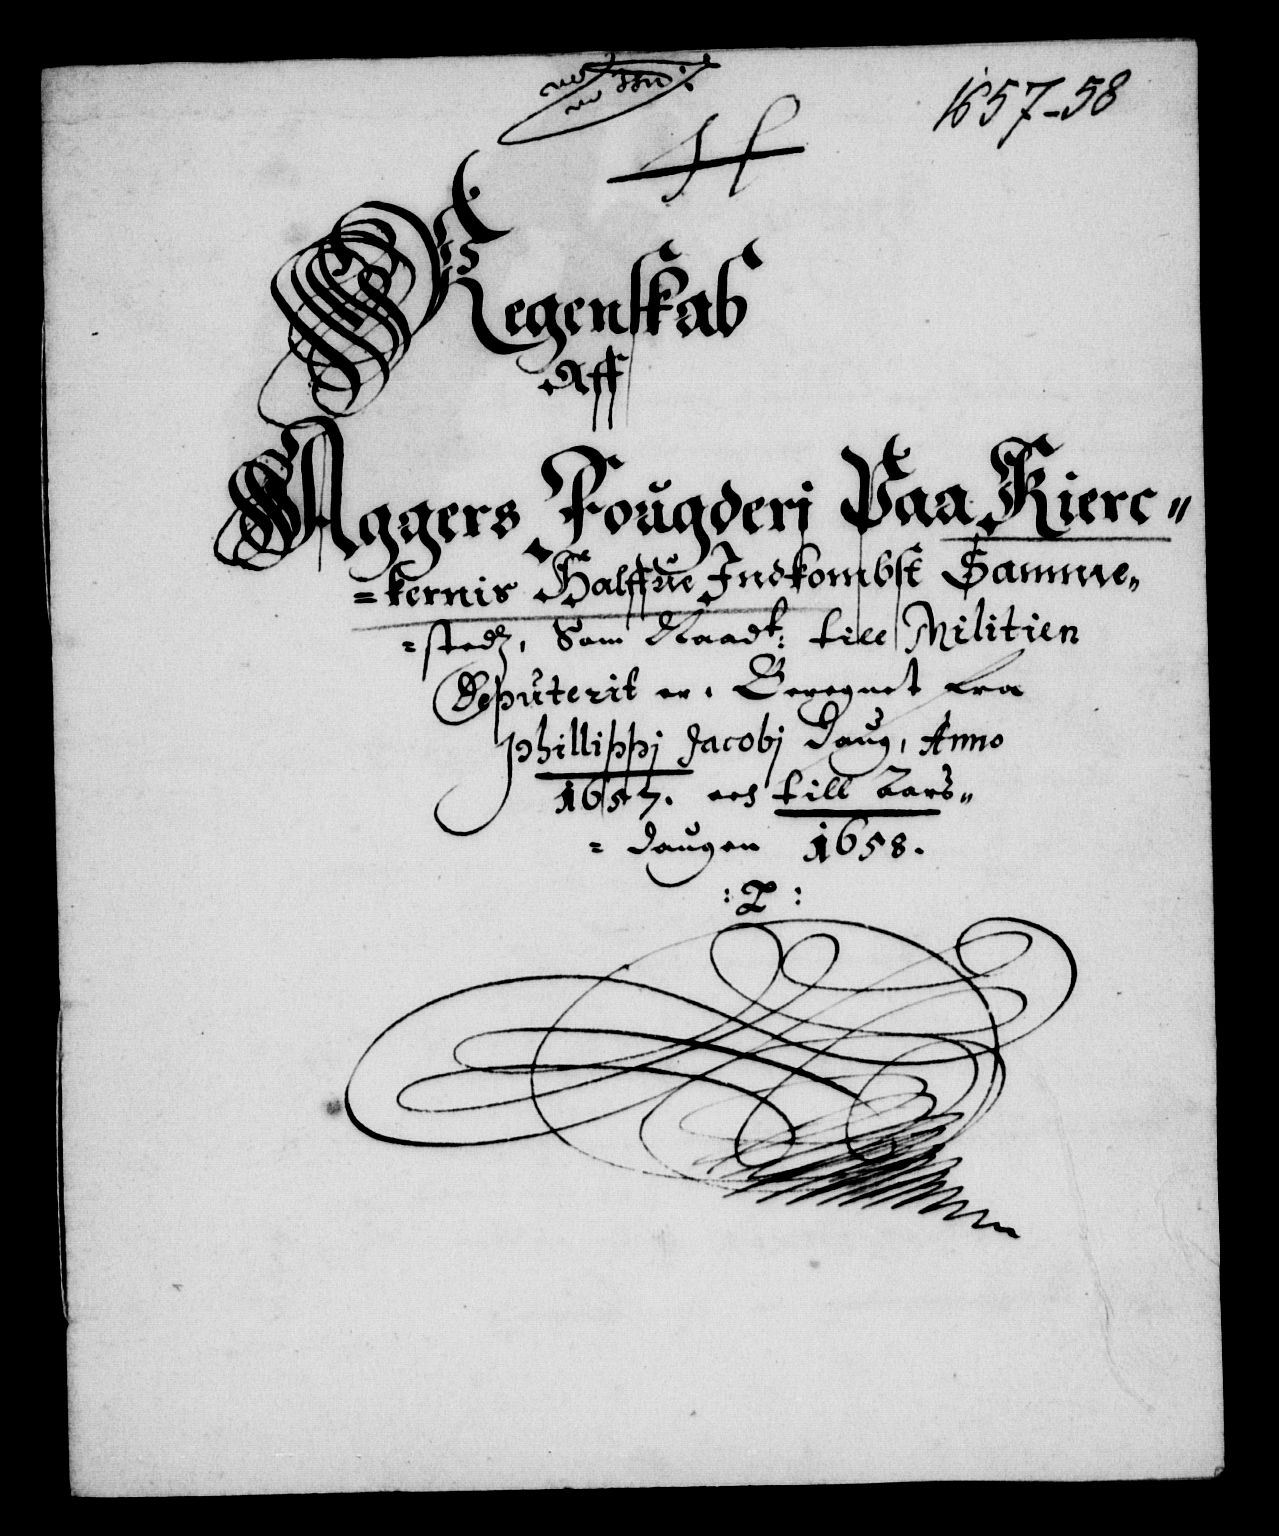 1657-58
Regenskab
Aff
Aggers Fougderj Paa Kierc〃
=kernis Halffue Indkombst Samme〃
=stedz, Som Naadt: till Militien
Deputerit er, Beregnet fra
Phillippj Jacobj Daug, Anno
1657. och till Aars〃
= daugen 1658.